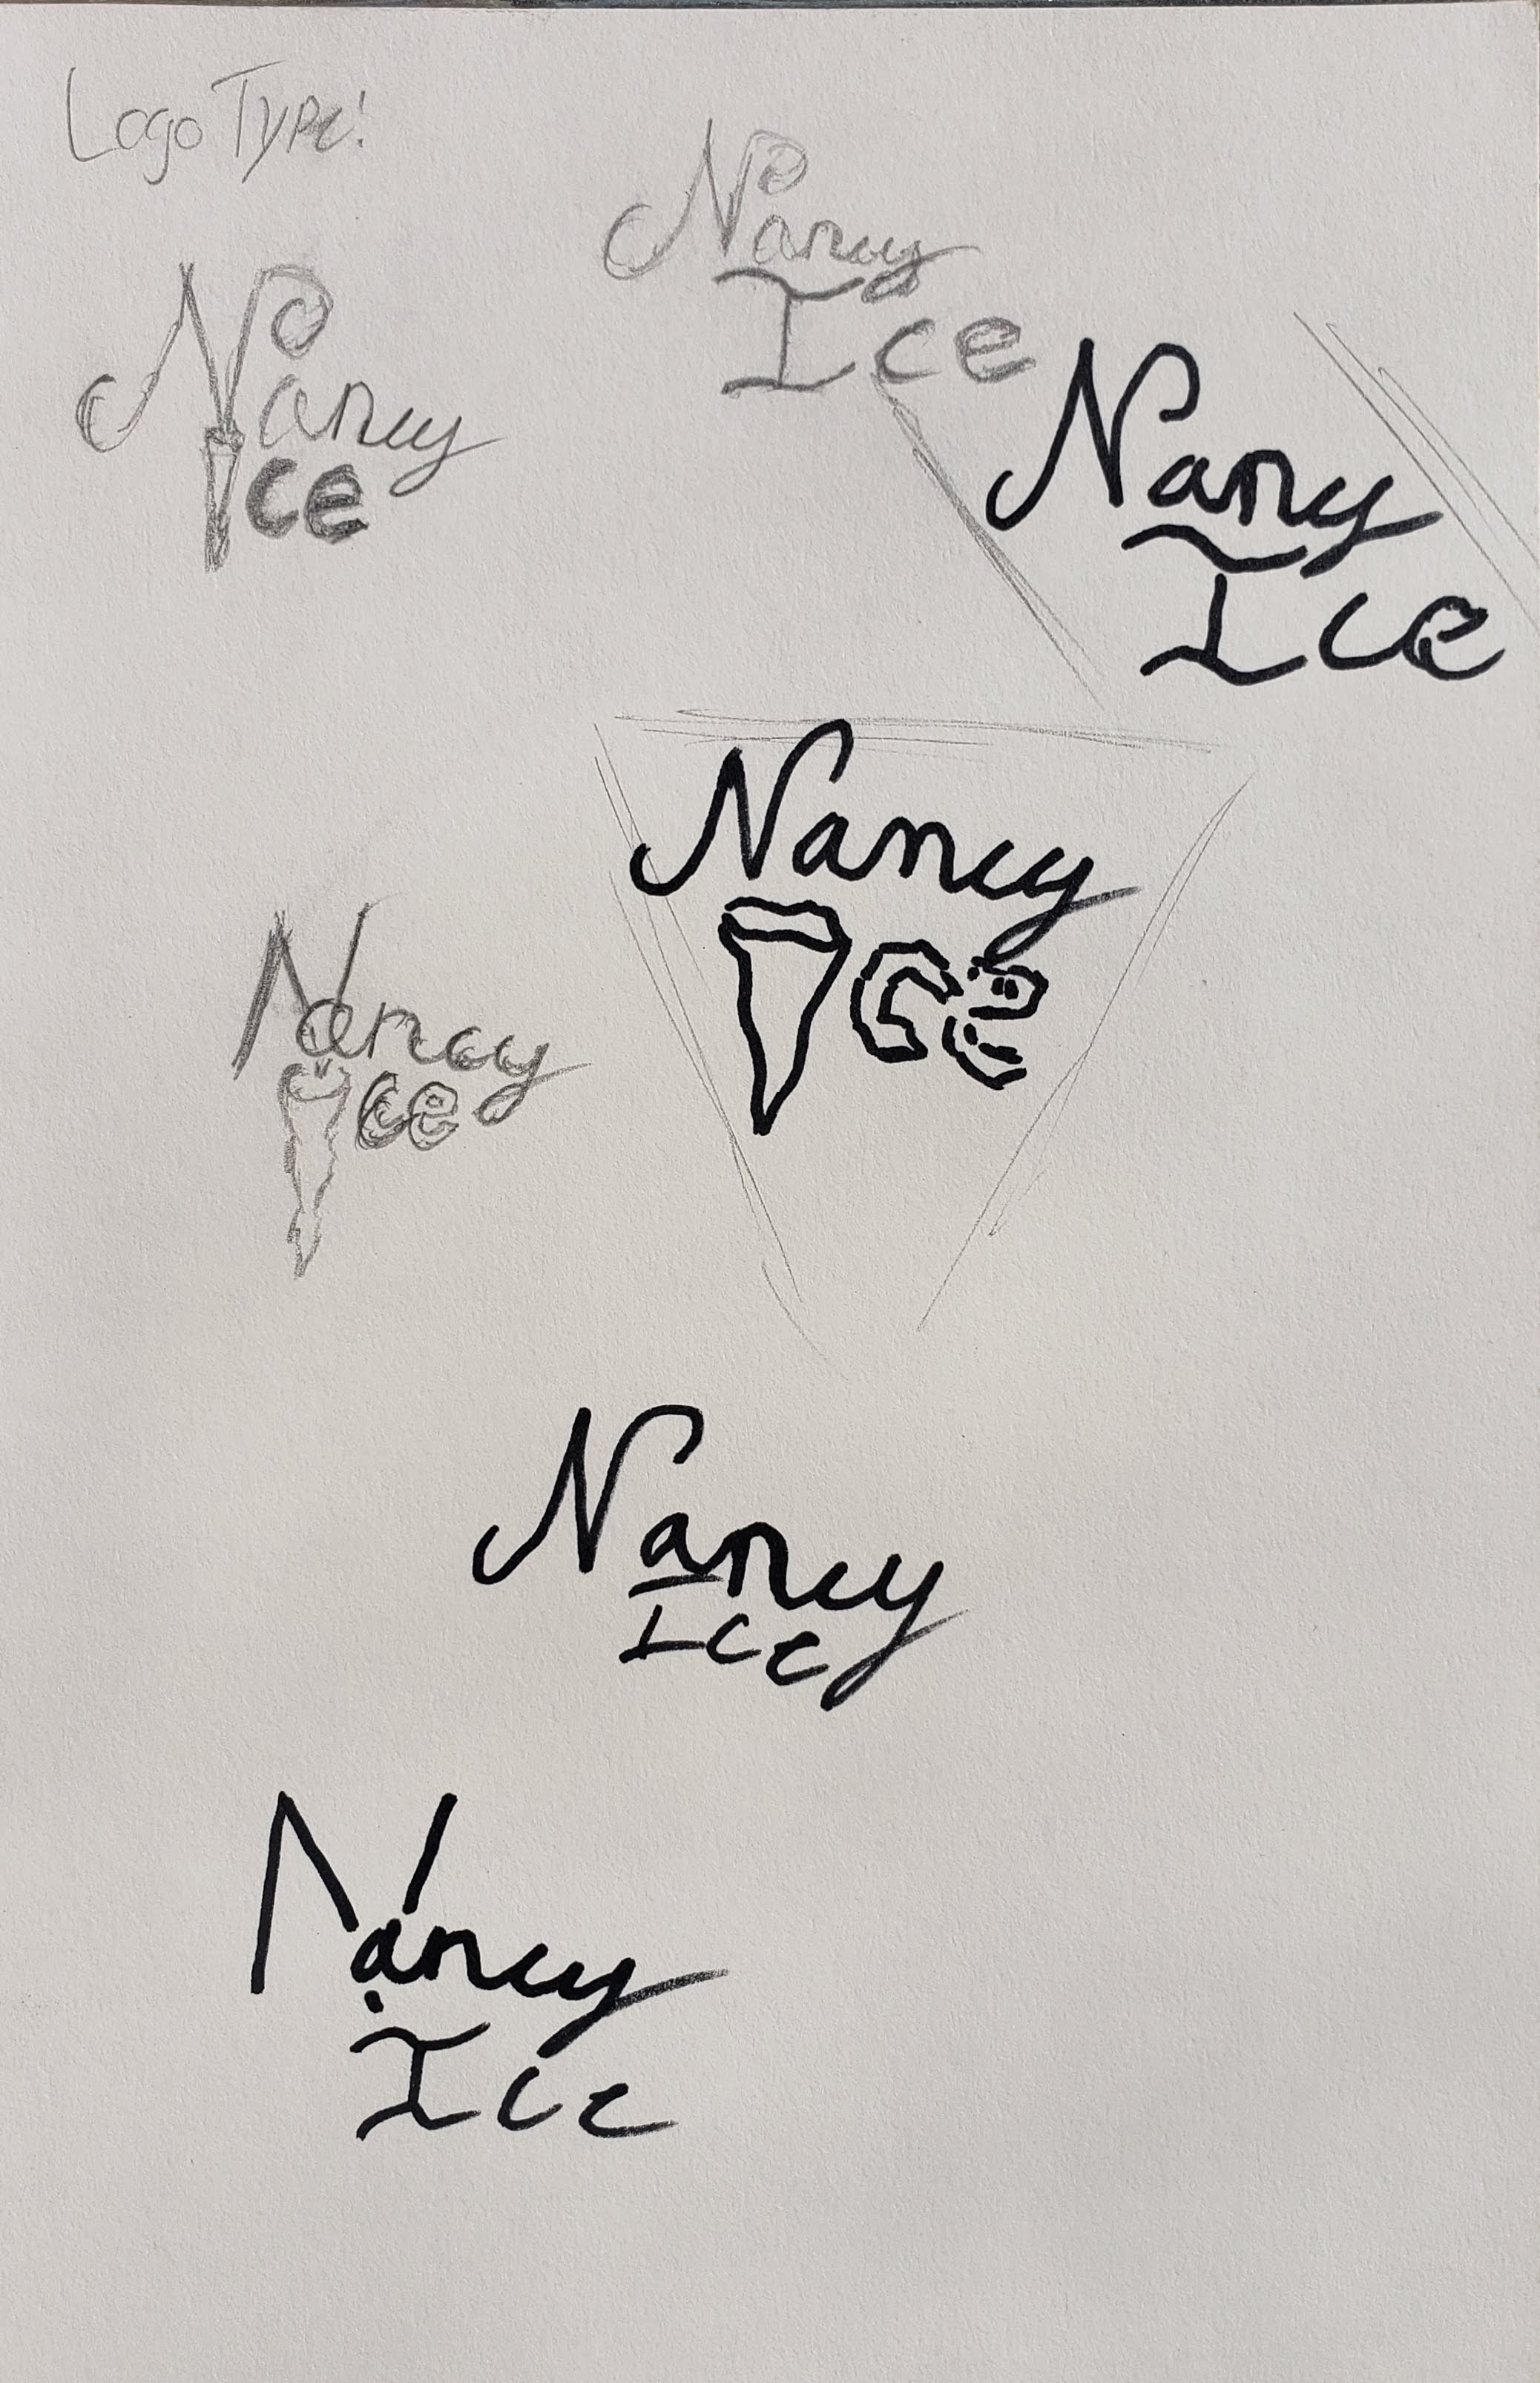 Logo Type!
Nancy
Ice
Nancy
Ice
Nancy
Ice
Nancy
Ice
Nancy
Ice
Nancy
Ice
Nancy
Ice